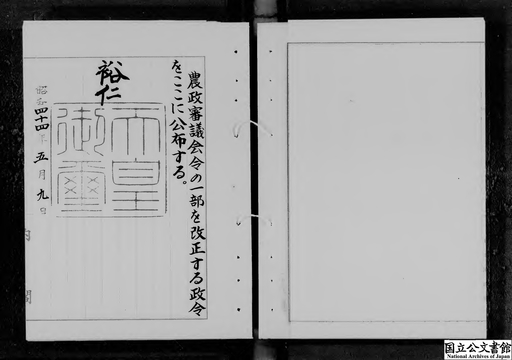 農政審議会令の一部を改正する政令
をここに公布する。
裕仁
天皇
御璽
昭和四十四年五月九日
内閣
国立公文書館
National Archives of Japan